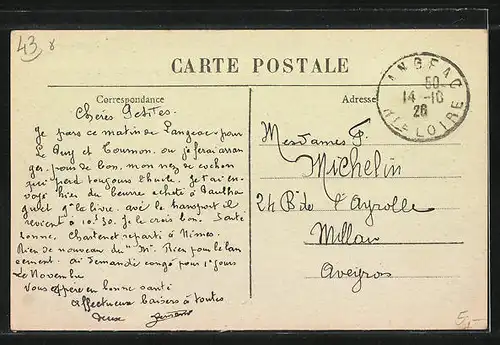 43
CARTE POSTALE
Correspondance
Adresse
LANGEAC
14-10
26
HTE LOIRE
Chères Petites.
Je pars ce matin de Langeac pour
Le Puy et Tournon. ou je ferai arran
ger pour de bon. mon nez de cochon
qui perd toujours l'huile. Je t'ai en-
voyé hier du beurre acheté à Paulha
guet 9f le livre. avec le transport il
revient à 10f30. Je le crois bon. Santé
bonne. Chartenet reparti à Nimes.
Rien de nouveau du Rien pour le lan
cement. ai demandé congé pour 1ers jours
de Novembre
Vous espère en bonne santé
Affectueux baisers à toutes
deux
Mesdames F.
Michelin
24 Bd de l'Ayrolle
Millau
Aveyron
5,-